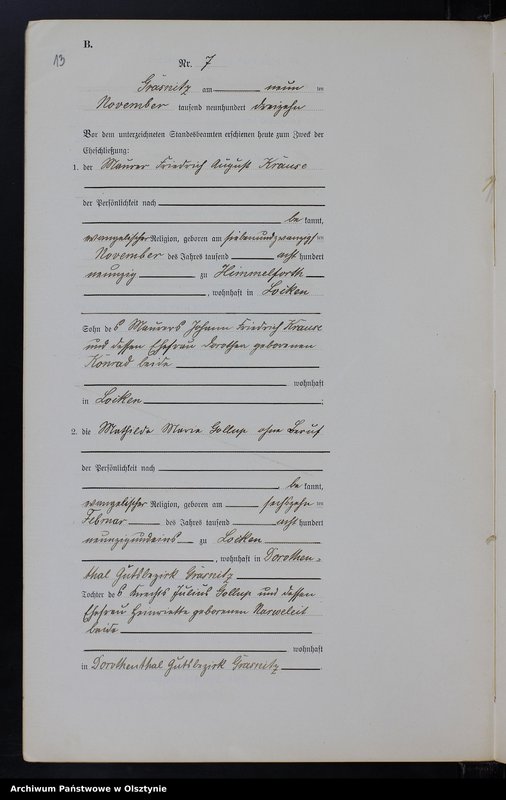 B.
13
Nr. 7
Grasnitz am neun ten
November tausend neunhundert dreizehn
Vor dem unterzeichneten Standesbeamten erschienen heute zum Zweck der
Eheschließung:
1. der Maurer Friedrich August Krause
der Persönlichkeit nach
be kannt,
evangelischer Religion, geboren am siebenundzwanzigsten
November des Jahres tausend acht hundert
neunzig zu Himmelforth
, wohnhaft in Locken
Sohn des Maurers Johann Friedrich Krause
und dessen Ehefrau Dorothea geborenen
Konrad beide
wohnhaft
in Locken ;
2. die Mathilde Marie Gollup ohne Beruf
der Persönlichkeit nach
, be kannt,
evangelischer Religion, geboren am sechszehn ten
Februar des Jahres tausend acht hundert
neunzigundeins zu Locken
, wohnhaft in Dorothen=
thal Gutsbezirk Grasnitz
Tochter des Knechts Julius Gollup und dessen
Ehefrau Henriette geborenen Narweleit
beide
wohnhaft
in Dorothenthal Gutsbezirk Grasnitz .
Archiwum Państwowe w Olsztynie